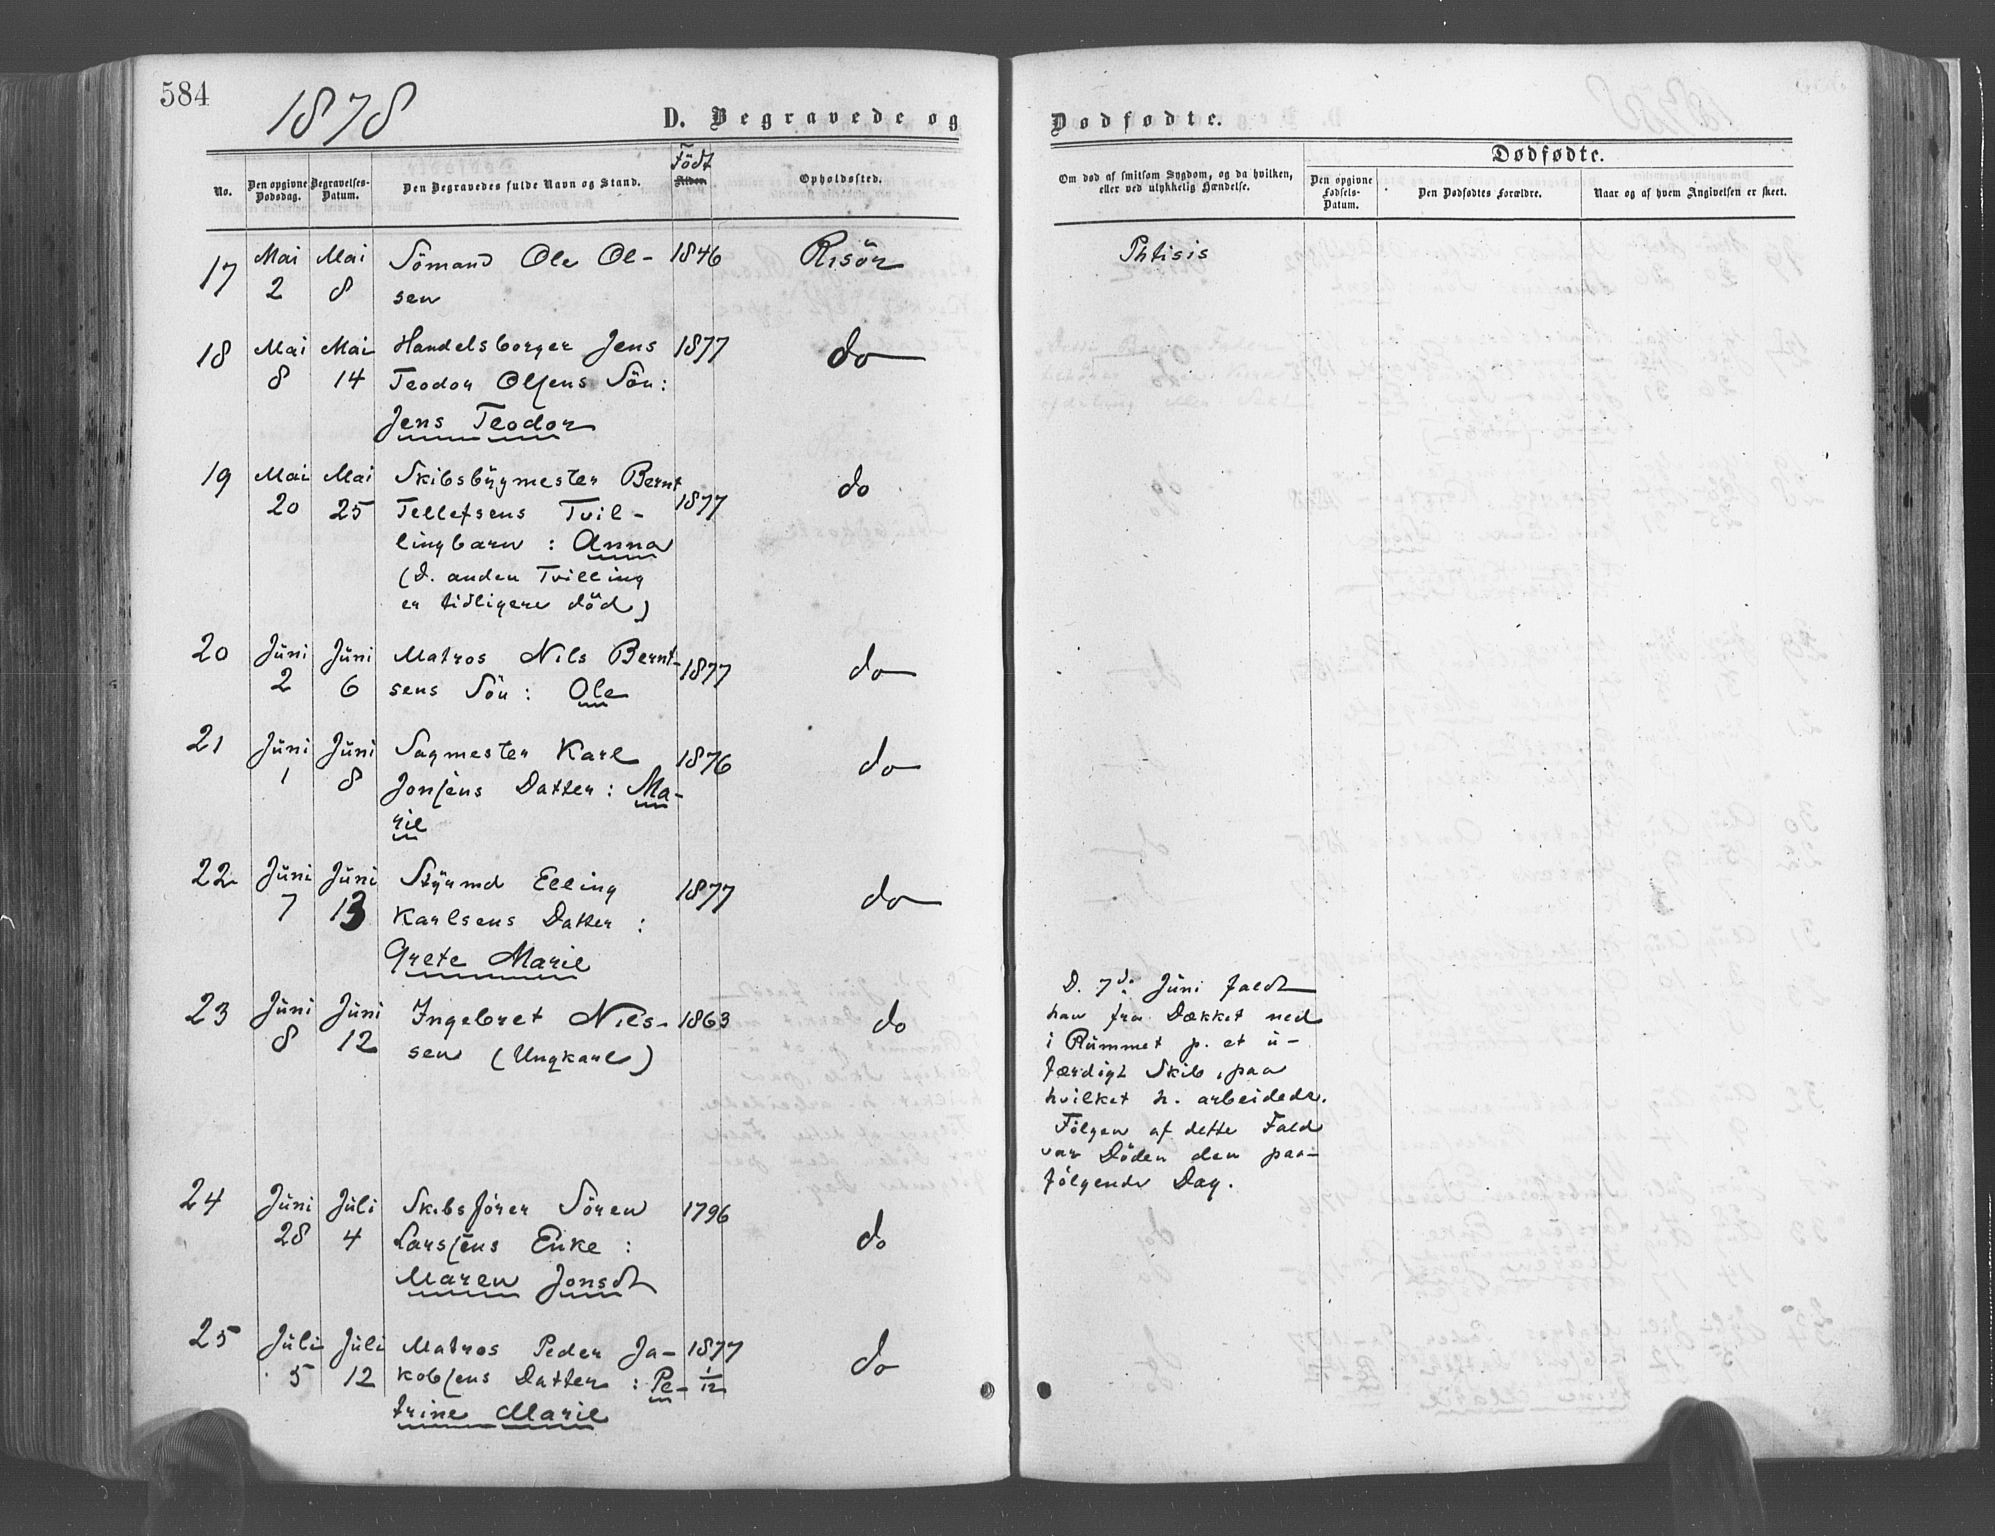 584
1878
D. Begravede og Dødfødte.
No.
Den opgivne Dødsdag.
Begravelses-Datum.
Den Begravedes fulde Navn og Stand.
Födt
Alder.
Opholdssted.
Om død af smitsom Sygdom, og da hvilken,
eller ved ulykkelig Hændelse.
Dødfødte.
Den opgivne Fødsels-Datum.
Den Dødfødtes Forældre.
Naar og af hvem Angivelsen er skeet.
17 Mai 2 Mai 8 Sömand Ole Ol- 1846 Risör Phtisis
sen
18 Mai 8 Mai 14 Handelsborger Jens 1877 do
Teodor Olsens Sön:
Jens Teodor
19 Mai 20 Mai 25 Skibsbygmester Bernt 1877 do
Tellefsens Tvil-
lingbarn : Anna
(D. anden Tvilling
er tidligere död)
20 Juni 2 Juni 6 Matros Nils Bernt- 1877 do
sens Sön : Ole
21 Juni 1 Juni 8 Sagmester Karl 1876 do
Jonsens Datter : Ma-
rie
22 Juni 7 Juni 13 Styrmd Elling 1877 do
Karlsens Datter :
Grete Marie
23 Juni 8 Juni 12 Ingebret Niels- 1863 do
sen (Ungkarl)
D. 7de Juni faldt
han fra Dækket ned
i Rummet p. et u-
færdigt Skib, paa
hvilket h. arbeidede.
Følgen af dette Fald
var Døden den paa-
følgende Dag.
24 Juni 28 Juli 4 Skibsfører Sören 1796 do
Larsens Enke :
Maren Jonsdt
25 Juli 5 Juli 12 Matros Peder Ja- 1877 do
kobsens Datter : Pe- 1/12
trine Marie